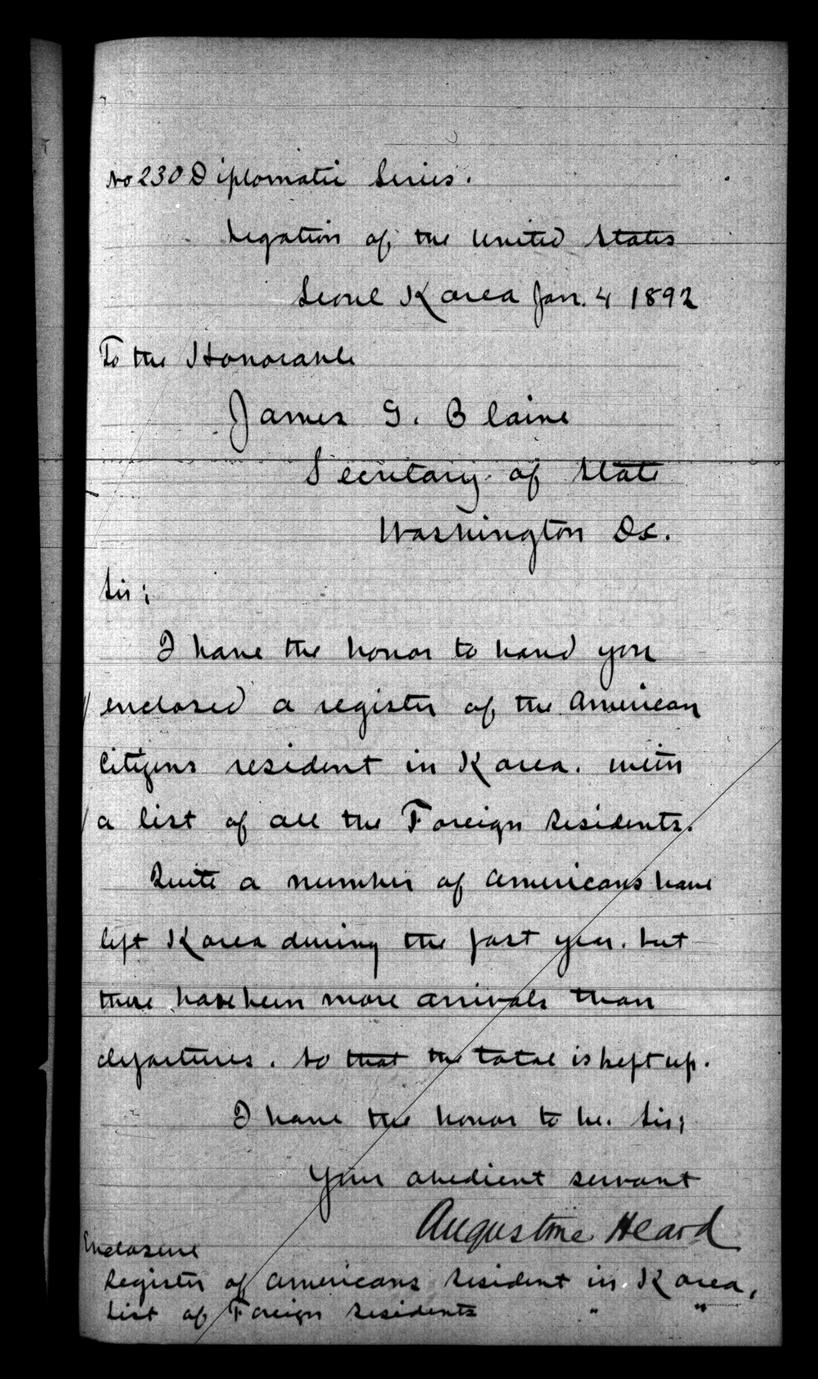 No 230 Diplomatic Series.
Legation of the United States
Seoul Korea Jan. 4 1892
To the Honorable
James G. Blaine
Secretary of State
Washington D.C.
Sir;
I have the honor to hand you
enclosed a register of the American
Citizens resident in Korea. with
a list of all the Foreign Residents.
Quite a number of Americans have
left Korea during the past year. but
there have been more arrivals than
departures. So that the total is kept up.
I have the honor to be. Sir;
Your obedient servant
Augustine Heard
Enclosure
Register of Americans Resident in Korea,
List of Foreign Residents " "